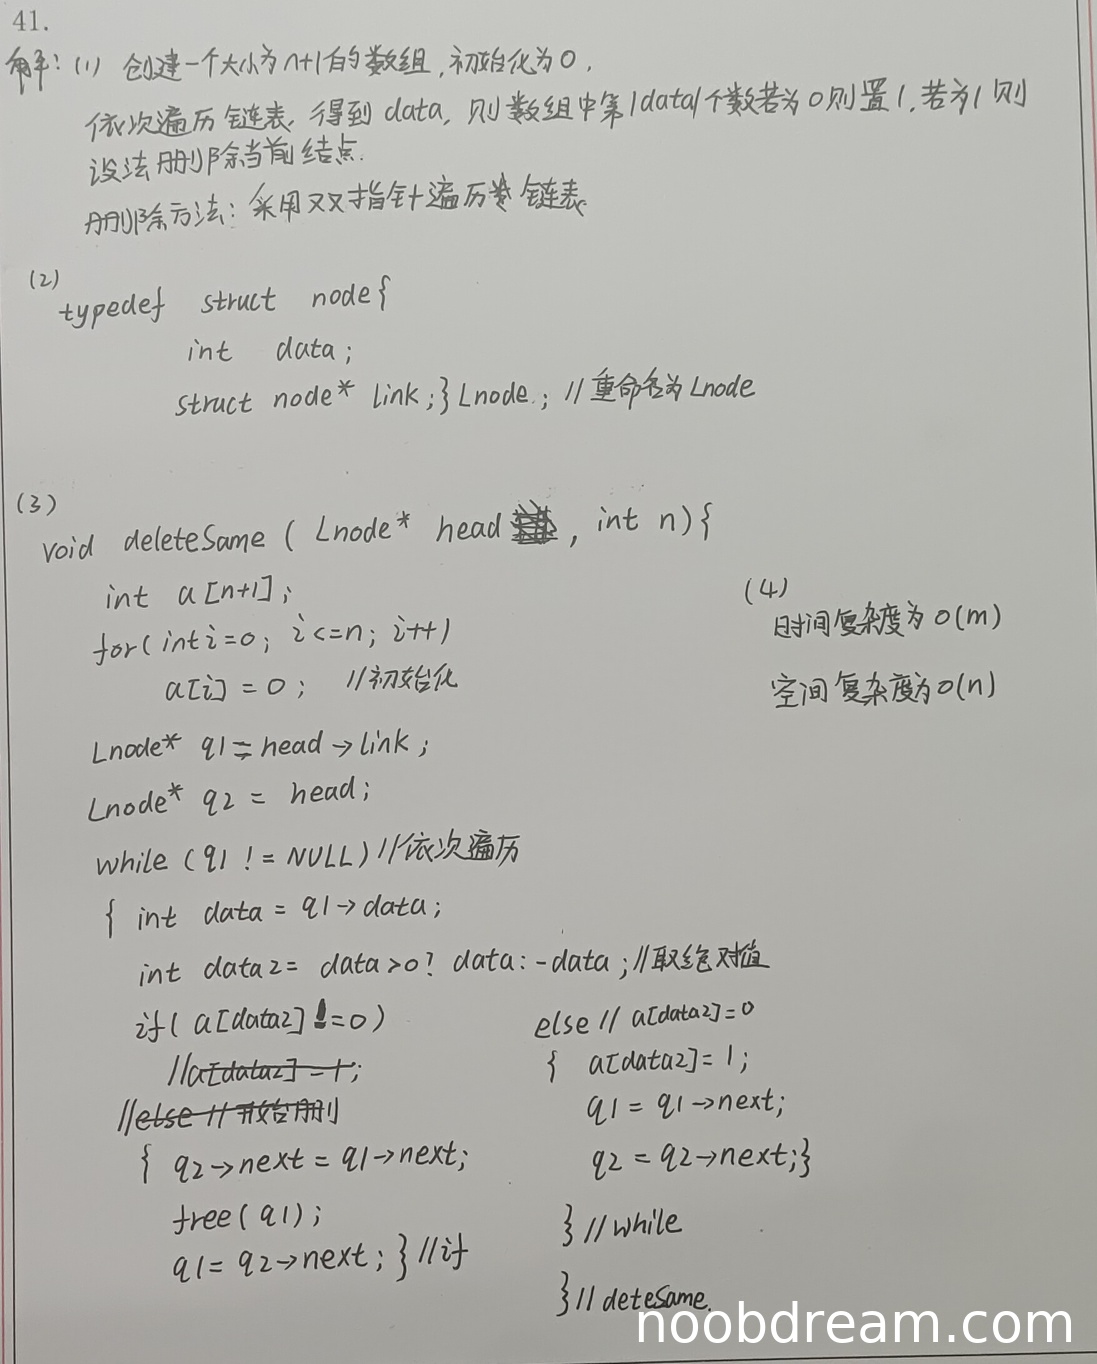 41.
解：(1) 创建一个大小为n+1的数组，初始化为0，
依次遍历链表，得到data，则数组中第|data|个数若为0则置1，若为1则
设法删除当前结点.
删除方法：采用双指针遍历 链表
(2)
typedef struct node{
int data;
struct node* link;}Lnode; //重命名为Lnode
(3)
void deleteSame ( Lnode* head , int n){
int a[n+1];
for(int i=0; i<=n; i++)
a[i] = 0; //初始化
Lnode* q1 = head->link;
Lnode* q2 = head;
while (q1 != NULL) //依次遍历
{ int data = q1->data;
int data2= data>0? data:-data; //取绝对值
if( a[data2] !=0)
//a[data2] = 1;
//else // 开始删
{ q2->next = q1->next;
free(q1);
q1= q2->next; } //if
else // a[data2]=0
{ a[data2]=1;
q1 = q1->next;
q2 = q2->next;}
} //while
}// deteSame.
(4)
时间复杂度为O(m)
空间复杂度为O(n)
noobdream.com